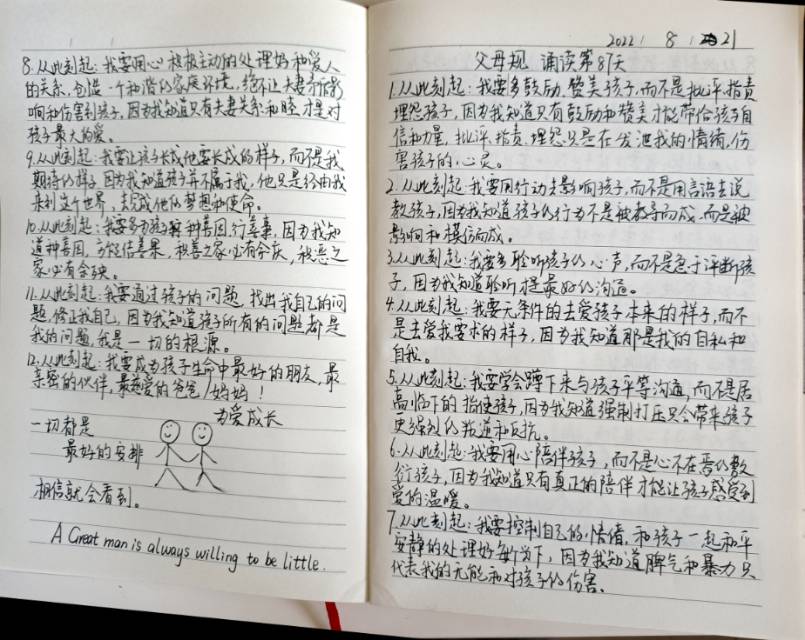 8.从此刻起:我要用心积极主动的处理好和爱人
的关系,创造一个和谐的家庭环境,绝不让夫妻矛盾影
响和伤害到孩子,因为我知道只有夫妻关系和睦才是对
孩子最大的爱。
9.从此刻起:我要让孩子长成他要长成的样子,而不是我
期待的样子,因为我知道孩子并不属于我,他只是经由我
来到这个世界,去完成他的梦想和使命。
10.从此刻起:我要多为孩子种善因,行善事,因为我知
道种善因,方能结善果,积善之家必有余庆,积恶之
家必有余殃。
11.从此刻起:我要通过孩子的问题,找出我自己的问
题,修正我自己,因为我知道孩子所有的问题都是
我的问题,我是一切的根源。
12.从此刻起:我要成为孩子生命中最好的朋友,最
亲密的伙伴,最慈爱的爸爸/妈妈!
为爱成长
一切都是
最好的安排
相信就会看到。
A Great man is always willing to be little.
2022 / 8 / 21
父母规 诵读第87天
1.从此刻起:我要多鼓励,赞美孩子,而不是批评,指责
埋怨孩子,因为我知道只有鼓励和赞美才能带给孩子自
信和力量,批评,指责,埋怨只是在发泄我的情绪,伤
害孩子的心灵。
2.从此刻起:我要用行动去影响孩子,而不是用言语去说
教孩子,因为我知道孩子的行为不是被教导而成,而是被
影响和模仿而成。
3.从此刻起:我要多聆听孩子的心声,而不是急于评断孩
子,因为我知道聆听才是最好的沟通。
4.从此刻起:我要无条件的去爱孩子本来的样子,而不
是去爱我要求的样子,因为我知道那是我的自私和
自我。
5.从此刻起:我要学会蹲下来与孩子平等沟通,而不是居
高临下的指使孩子,因为我知道强制打压只会带来孩子
更强烈的叛逆和反抗。
6.从此刻起:我要用心陪伴孩子,而不是心不在焉的敷
衍孩子,因为我知道只有真正的陪伴才能让孩子感受到
爱的温暖。
7.从此刻起:我要控制自己的情绪,和孩子一起和平
安静的处理好每个当下,因为我知道脾气和暴力只
代表我的无能和对孩子的伤害。